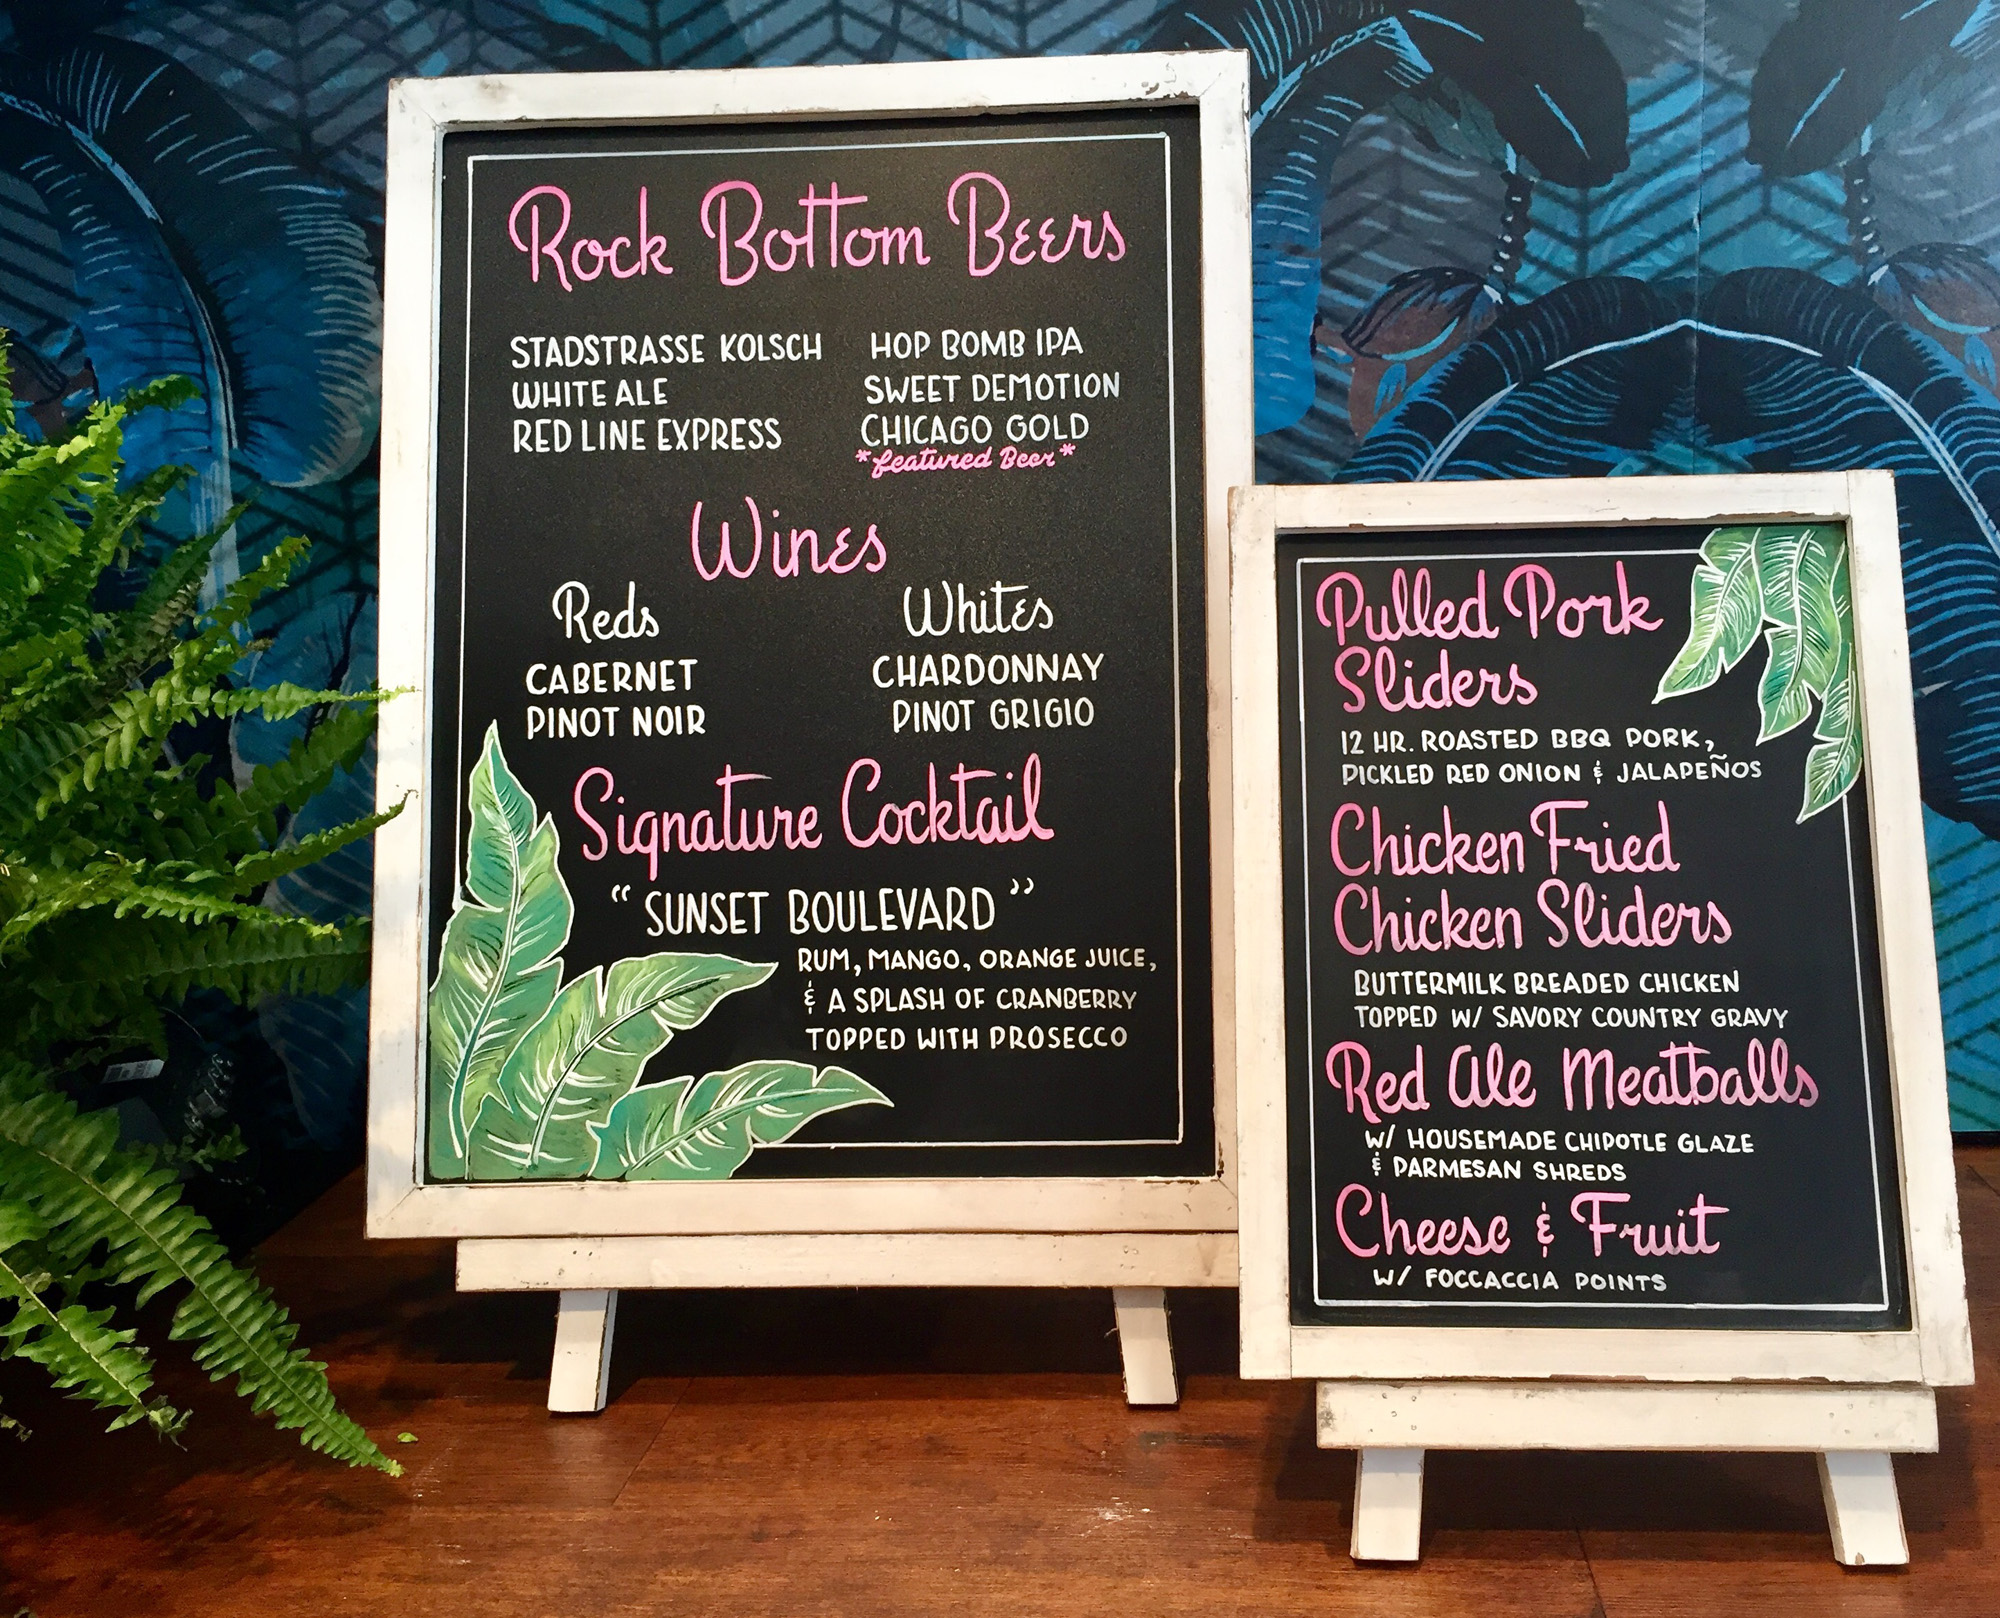 Rock Bottom Beers
STADSTRASSE KOLSCH
WHITE ALE
RED LINE EXPRESS
HOP BOMB IPA
SWEET DEMOTION
CHICAGO GOLD
*featured Beer*
Wines
Reds
CABERNET
PINOT NOIR
Whites
CHARDONNAY
PINOT GRIGIO
Signature Cocktail
"SUNSET BOULEVARD"
RUM, MANGO, ORANGE JUICE,
& A SPLASH OF CRANBERRY
TOPPED WITH PROSECCO
Pulled Pork
Sliders
12 HR. ROASTED BBQ PORK,
PICKLED RED ONION & JALAPEÑOS
Chicken Fried
Chicken Sliders
BUTTERMILK BREADED CHICKEN
TOPPED W/ SAVORY COUNTRY GRAVY
Red Ale Meatballs
W/ HOUSEMADE CHIPOTLE GLAZE
& PARMESAN SHREDS
Cheese & Fruit
W/ FOCCACCIA POINTS